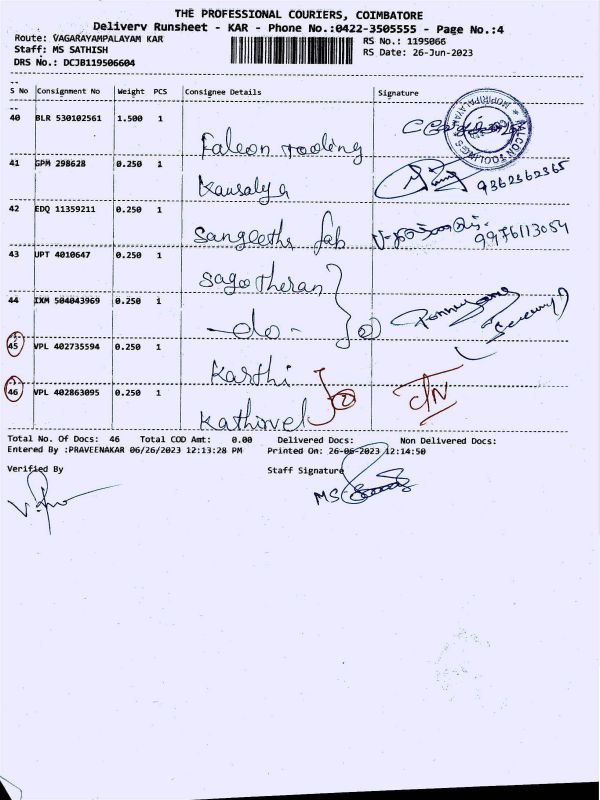 THE PROFESSIONAL COURIERS, COIMBATORE
Delivery Runsheet - KAR - Phone No.:0422-3505555 - Page No.:4
Route: VAGARAYAMPALAYAM KAR
RS No.: 1195066
Staff: MS SATHISH
RS Date: 26-Jun-2023
DRS No.: DCJB119506604
S No Consignment No Weight PCS Consignee Details Signature
40 BLR 530102561 1.500 1
Falcon Tooling
41 GPM 298628 0.250 1
Kausalya 9362362365
42 EDQ 11359211 0.250 1
Sangeetha fab 9976113054
43 UPT 4010647 0.250 1
44 IXM 504043969 0.250 1
-do- 2
45 VPL 402735594 0.250 1
Karthi
46 VPL 402863095 0.250 1
Kathirvel 2
Total No. Of Docs: 46 Total COD Amt: 0.00 Delivered Docs: Non Delivered Docs:
Entered By :PRAVEENAKAR 06/26/2023 12:13:28 PM Printed On: 26-06-2023 12:14:50
Verified By Staff Signature